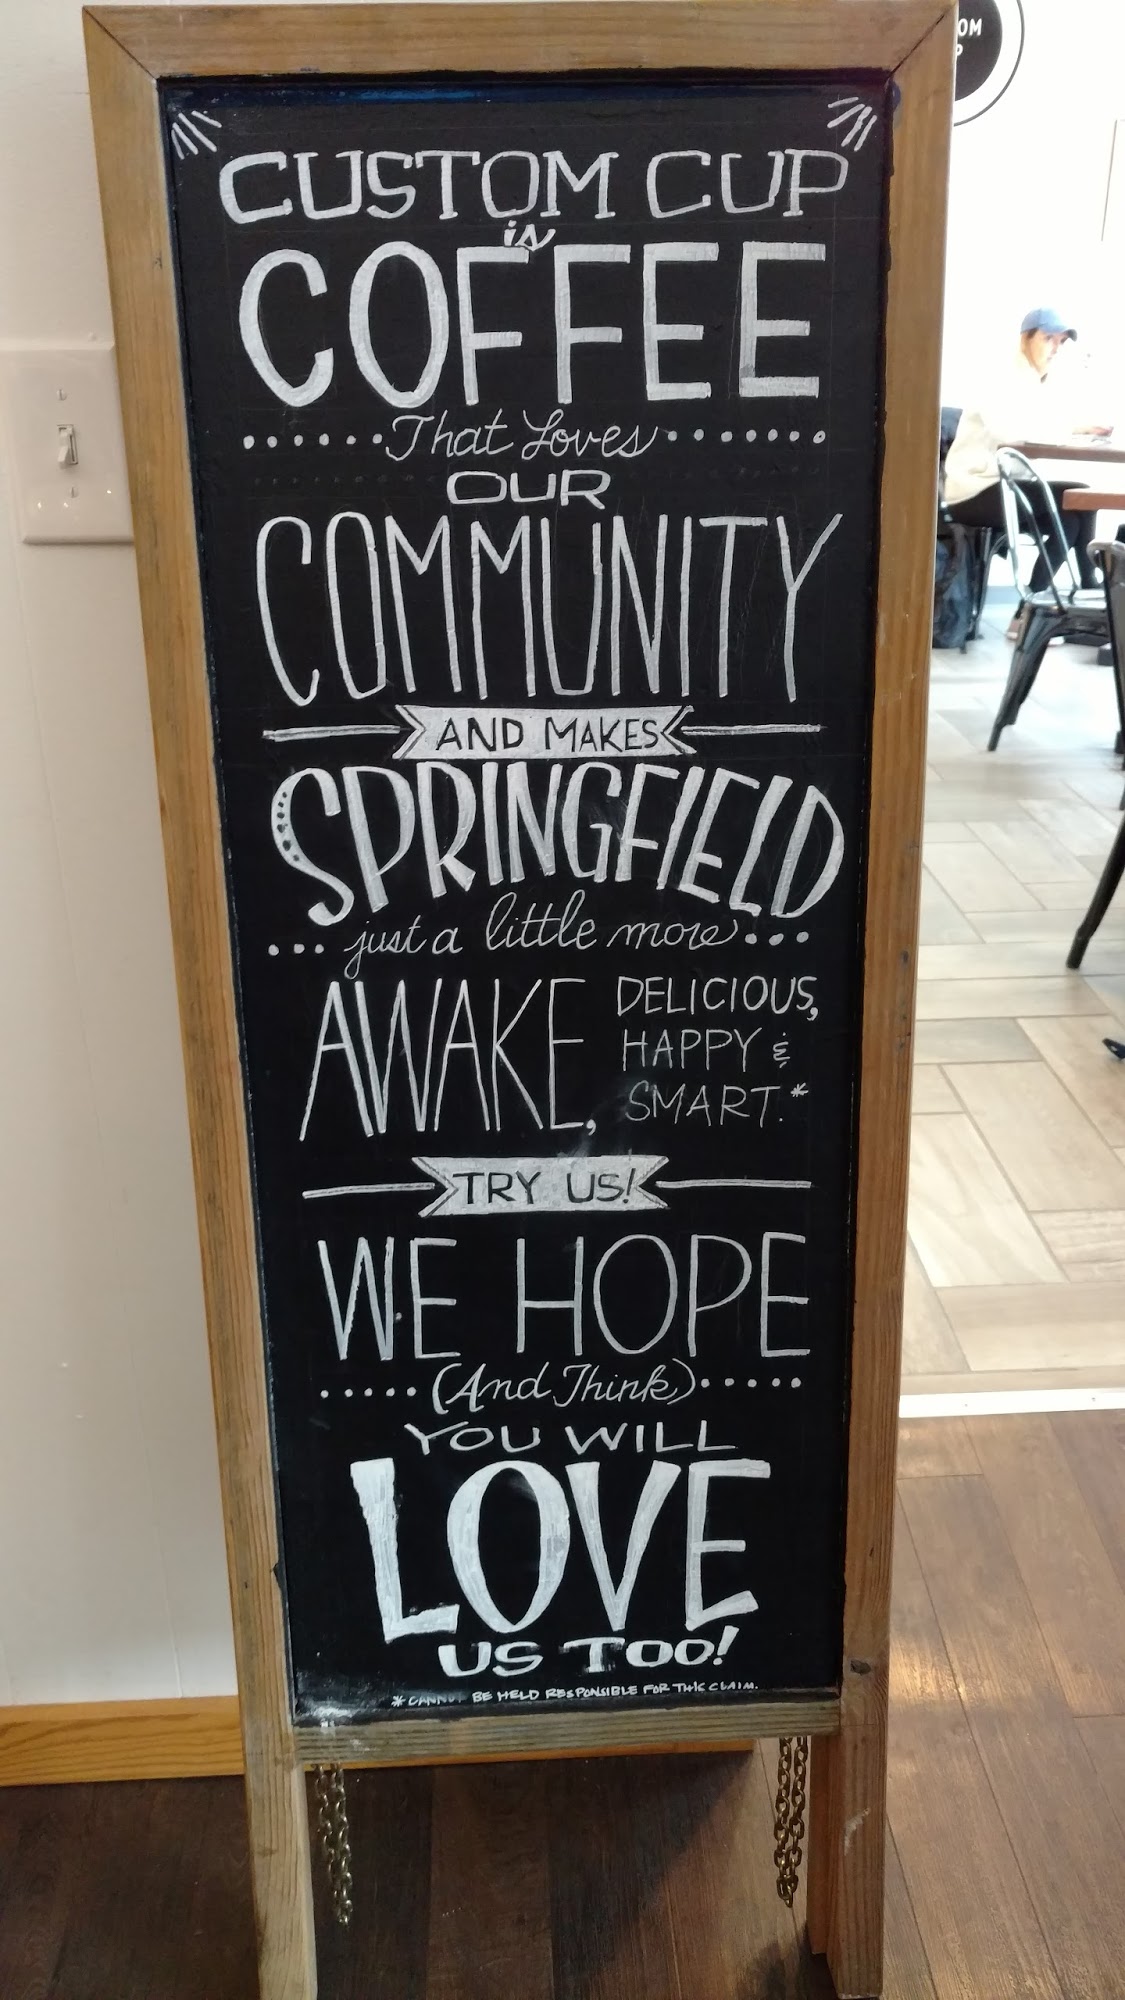 OM
P
CUSTOM CUP
is
COFFEE
That Loves
OUR
COMMUNITY
AND MAKES
SPRINGFIELD
just a little more
AWAKE, DELICIOUS,
HAPPY &
SMART.*
TRY US!
WE HOPE
(And Think)
YOU WILL
LOVE
US TOO!
* CANNOT BE HELD RESPONSIBLE FOR THIS CLAIM.